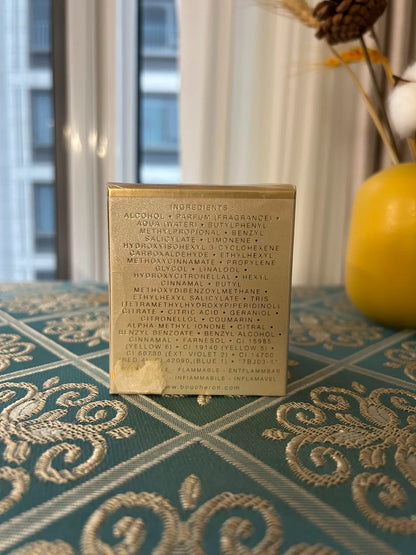 INGREDIENTS
ALCOHOL • PARFUM (FRAGRANCE) •
AQUA (WATER) • BUTYLPHENYL
METHYLPROPIONAL • BENZYL
SALICYLATE • LIMONENE •
HYDROXYISOHEXYL 3-CYCLOHEXENE
CARBOXALDEHYDE • ETHYLHEXYL
METHOXYCINNAMATE • PROPYLENE
GLYCOL • LINALOOL •
HYDROXYCITRONELLAL • HEXYL
CINNAMAL • BUTYL
METHOXYDIBENZOYLMETHANE •
ETHYLHEXYL SALICYLATE • TRIS
(TETRAMETHYLHYDROXYPIPERIDINOL)
CITRATE • CITRIC ACID • GERANIOL •
CITRONELLOL • COUMARIN •
ALPHA-METHYL IONONE • CITRAL •
BENZYL BENZOATE • BENZYL ALCOHOL •
CINNAMAL • FARNESOL • CI 15985
(YELLOW 6) • CI 19140 (YELLOW 5) •
CI 60730 (EXT. VIOLET 2) • CI 14700
(RED 4) • CI 42090 (BLUE 1)
FLAMMABLE - ENTFLAMMBAR
INFLAMMABLE - INFLAMAVEL
www.boucheron.com